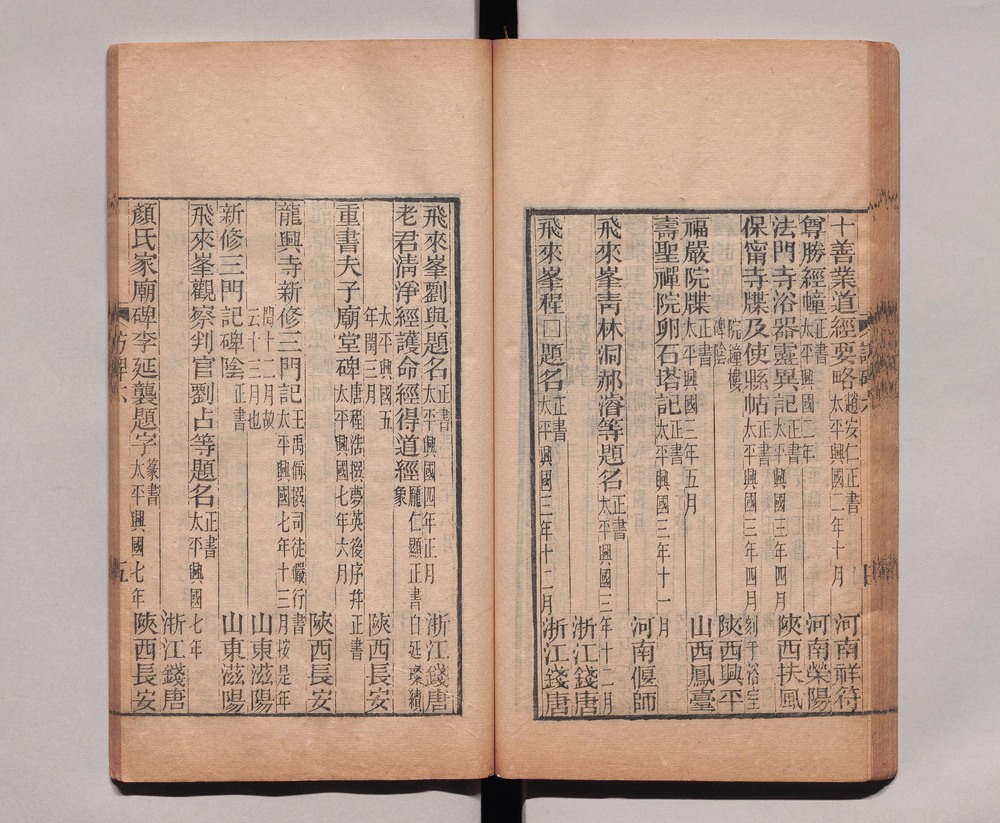 十善業道經要略趙安仁正書太平興國二年十月 河南祥符
尊勝經幢正書太平興國二年 河南滎陽
法門寺浴器靈異記正書太平興國三年四月 陝西扶風
保甯寺牒及使縣帖正書太平興國三年四月刻于浴室院鐘樓碑陰 陝西興平
福嚴院牒正書太平興國三年五月 山西鳳臺
壽聖禪院卵石塔記正書太平興國三年十一月 河南偃師
飛來峯青林洞郝濬等題名正書太平興國三年十二月 浙江錢唐
飛來峯程囗題名正書太平興國三年十二月 浙江錢唐
飛來峯劉與題名正書太平興國四年正月 浙江錢唐
老君清淨經護命經得道經龐仁顯正書白廷璨繢象太平興國五年閏三月 陝西長安
重書夫子廟堂碑唐程浩撰夢英後序幷正書太平興國七年六月 陝西長安
龍興寺新修三門記王禹偁撰司徒儼行書太平興國七年十三月按是年閏十二月故云十三月也 山東滋陽
新修三門記碑陰正書 山東滋陽
飛來峯觀察判官劉占等題名正書太平興國七年 浙江錢唐
顏氏家廟碑李延襲題字篆書太平興國七年 陝西長安
訪碑六
五